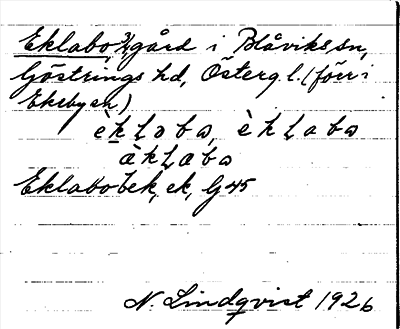 Eklabo 3/4 gård i Blåviks sn,
Göstrings hd, Östergl. (förr i
Ekeby sn)
èklaba, èklaba
æ̀klaba
Eklabobek, ek, G 45
N. Lindqvist 1926